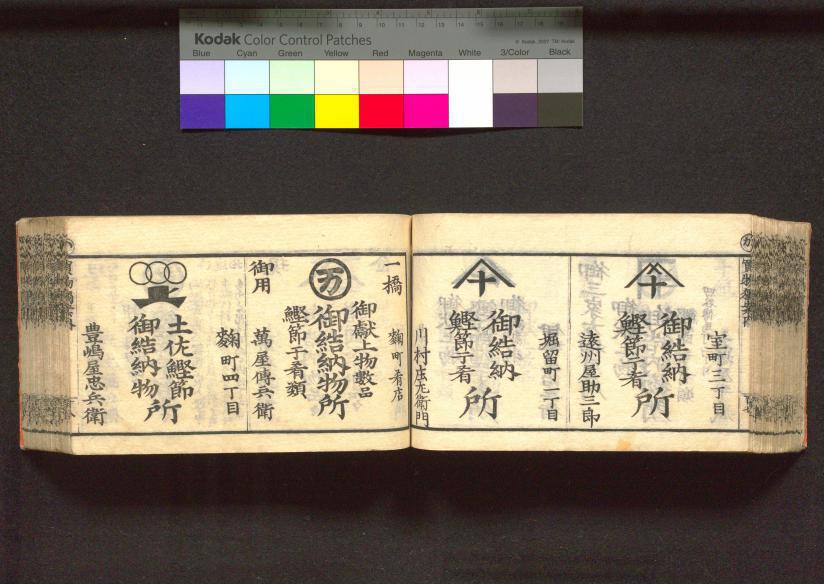 Kodak Color Control Patches
© Kodak, 2007 TM: Kodak
Blue Cyan Green Yellow Red Magenta White 3/Color Black
室町三丁目
御結納
鰹節干肴
所
遠州屋助三郎
堀留町一丁目
御結納
鰹節干肴
所
川村庄左衛門
一橋
御用
麹町肴店
御献上物数品
御結納物所
鰹節干肴類
萬屋傳兵衛
麹町四丁目
土佐鰹節
御結納物
所
豊嶋屋忠兵衛